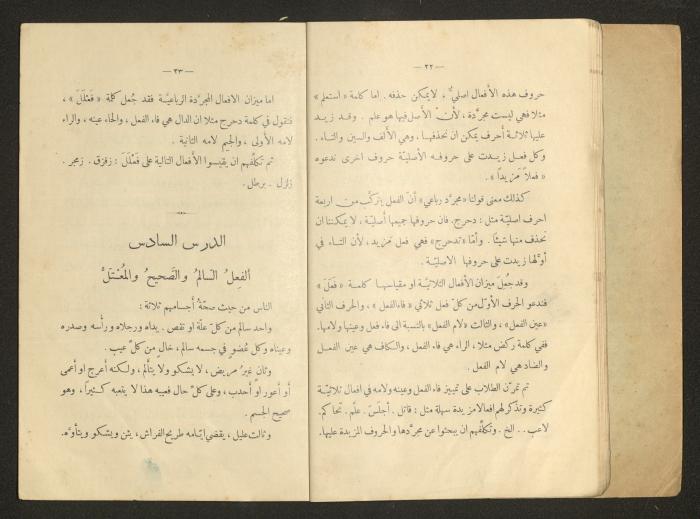 — ٢٢ —
حروف هذه الأفعال اصليّ، لا يمكن حذفه. اما كلمة «استعلم»
مثلا فهي ليست مجرّدة، لأنّ الأصل فيها هو علم. وقد زيد
عليها ثلاثة أحرف يمكن ان نحذفها، وهي الألف والسين والتاء.
وكل فعل زيدت على حروفه الأصليّة حروف اخرى ندعوه
«فعلاً مَزيداً».
كذلك معنى قولنا «مجرّد رباعي» أنّ الفعل يتركّب من اربعة
احرف اصليّة مثل: دحرج. فان حروفها جميعها أصليّة، لا يمكننا ان
نحذف منها شيئا. وأمّا «تدحرج» فهي فعل مَزيد، لأن التاء في
أوّلها زيدت على حروفها الاصليّة.
وقد جُعل ميزان الأفعال الثلاثيّة او مقياسها كلمة «فَعَلَ»
فندعو الحرف الأوّل من كلّ فعل ثلاثي «فاء الفعل»، والحرف الثاني
«عين الفعل»، والثالث «لام الفعل» بالنسبة الى فاء فعل وعينها ولامها.
ففي كلمة ركض مثلا، الراء هي فاء الفعل، والكاف هي عين الفعل
والضاد هي لام الفعل.
ثم تمرّن الطلاب على تمييز فاء الفعل وعينه ولامه في افعال ثلاثيّة
كثيرة وتذكر لهم افعالا مزيدة سهلة مثل: قاتل. أجلسَ. علّم. تحاكم.
لاعب.. الخ. وتكلّفهم ان يبحثوا عن مجرّدها والحروف المزيدة عليها.
— ٢٣ —
اما ميزان الافعال المجرّدة الرباعيّة فقد جُعل كلمة «فَعْلَلَ»،
فنقول في كلمة دحرج مثلا ان الدال هي فاء الفعل، والحاء عينه، والراء
لامه الأولى، والجيم لامه الثانية.
ثم تكلّفهم ان يقيسوا الأفعال التالية على فَعْلَلَ: زقزق. زمجر.
زلزل. برطل.
الدرس السادس
الفِعلُ السَالمُ والصَّحيحُ والمُعْتَلُّ
الناس من حيث صحّة أجسامهم ثلاثة:
واحد سالم من كلّ علّة او نقص. يداه ورجلاه ورأسه وصدره
وعيناه وكل عُضو في جسمه سالم، خالٍ من كلّ عيب.
وثانٍ غيرُ مريض، لا يشكو ولا يتألم، ولكنه أعرج او أعمى
أو أعور او أحدب، وعلى كلّ حال فعيبه هذا لا يتعبه كثيراً، وهو
صحيح الجسم.
وثالث عليل، يقضي ايّامه طريح الفراش، يئن ويشكو ويتأوّه.